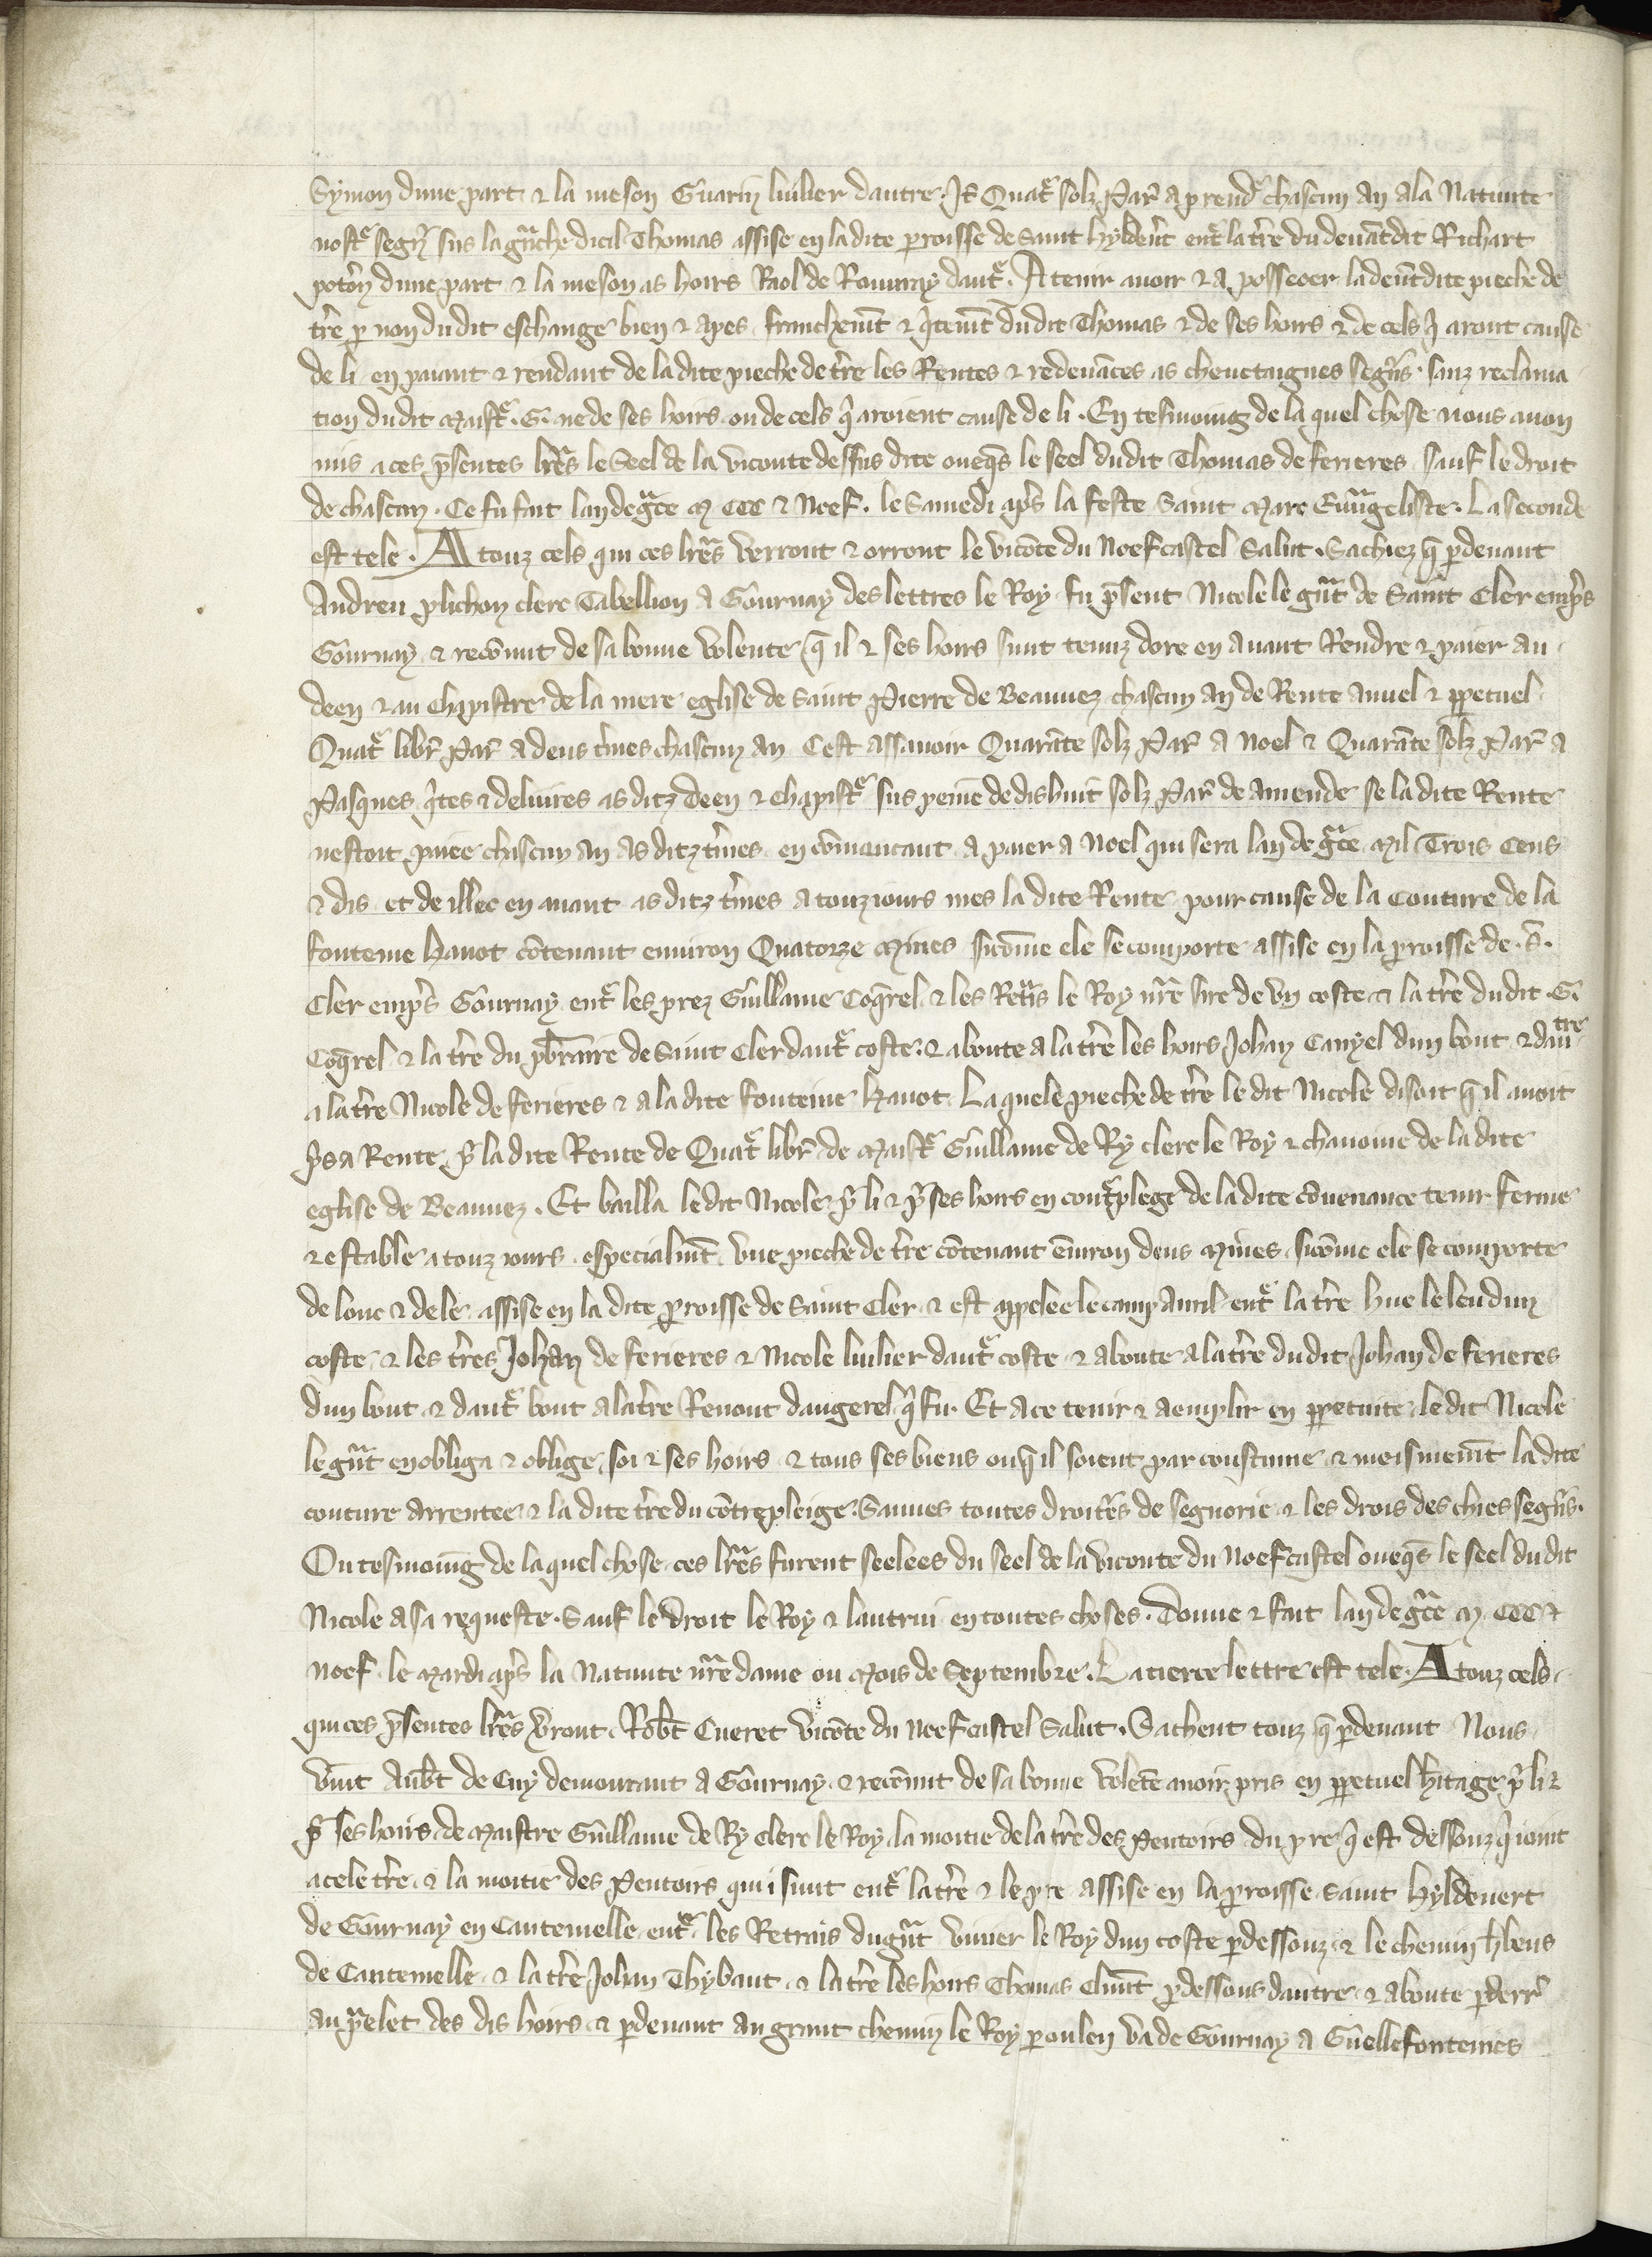 Symon dune part ⁊ la meson Guarin luilier dautre. It̄ Quatͤ solz par̄ a prendͤ chascun an ala Natiuite
nostͤ segn̄r sus la gͣnche dicil Thomas assise en ladite perroisse de Saint Hyldeu̾t entͤ la tr̄re du deuātdit Richart
potōn dune part ⁊ la meson as hoirs Raol de Roumray dautͤ. A tenir auoir ⁊ a posseoer la deuātdite pieche de
tr̄re p̲ non du dit eschange bien ⁊ apes franchem̄t ⁊ q̄tem̄t dudit Thomas ⁊ de ses hoirs ⁊ de cels q̄ aront cause
de li en paiant ⁊ rendant de la dite pieche de tr̄re les Rentes ⁊ redeuāces as cheuetaignes segn̄rs. sanz reclama
tion dudit Maistͤ. G. ne de ses hoirs ou de cels qͥ aroient cause de li. En tesmoing de la quel chose nous auon
mis a ces p̄sentes lr̄es le Seel de la viconte dessus dite oueqs̄ le seel dudit Thomas de ferieres sauf le droit
de chascun. Ce fu fait lan de gͣce M CCC ⁊ Noef. le Samedi ap̄s la feste Saint Marc Euuāgeliste. La seconde
est tele. A touz cels qui ces lr̄es verront ⁊ orront le vicōte du Noefcastel Salut. Sachiez q̄ p̲deuant
Andreu plichon clerc Tabellion a Gournay des lettres le Roy fu p̄sent Nicole le gͣnt de Saint Cler emp̄s
Gournay ⁊ recōnut de sa bonne volente q̄ il ⁊ ses hoirs sunt tenuz dore en auant Rendre ⁊ paier au
deen ⁊ au Chapistre de la mere eglise de Saint Pierre de Beauuez chascun an de Rente annel ⁊ p̲petuel
Quatͤ libr̄ par̄ a deus t̾mes chascun an Cest assauoir Quarāte solz par̄ a Noel ⁊ Quarāte solz par̄ a
Pasques q̄tes ⁊ deliuires as ditz deen ⁊ chapistͤ sus peine de dishuit solz par̄ de amende se la dite Rente
nestoit paiee chascun an as ditz t̾mes en cōmencant a paier a Noel qui sera lan de gͣce Mil Trois Cens
⁊ dis et de illec en auant as ditz t̾mes a touziours mes la dite Rente pour cause de la Couture de la
fonteine hauot cōtenant enuiron Quatorze Mines sicōme ele se comporte assise en la p̲roisse de .S̄.
Cler emp̄s Gournay entͤ les prez Guillaume Coq̄rel ⁊ les Retͣis le Roy nr̄e sire de vn coste ⁊ la tr̄re dudit .G.
Coq̄rel ⁊ la tr̄re du p̄brraire de Saint Cler dautͤ coste. ⁊ aboute a la tr̄re les hoirs Johan Canyel dun bout ⁊ dautre
a la tr̄re Nicole de ferieres ⁊ a la dite fonteine hauot La quele pieche de tr̄re le dit Nicole disoit q̄ il auoit
p̄s a Rente pͬ la dite Rente de Quatͤ libr̄ de Maistͤ Guillaume de Ry clerc le Roy ⁊ chanoine de la dite
eglise de Beauuez. Et bailla le dit Nicole pͬ li ⁊ pͬ ses hoirs en contͤplege de la dite cōuenance tenir ferme
⁊ estable a touz iours especialmēt vne pieche de tr̄re cōtenant ēuiron deus Mines sicōme ele se comporte
de lonc ⁊ de le assise en la dite p̲roisse de Saint Cler ⁊ est appelee le camp Auril entͤ la tr̄re hue lelen dun
coste ⁊ les tr̄res Johan de ferieres ⁊ Nicole luilier dautͤ coste ⁊ aboute a la tr̄re dudit Johan de ferieres
dun bout ⁊ dautͤ bout a la tr̄re Renout daugerel qͥ fu. Et a ce tenir ⁊ aemplir en p̲petuite le dit Nicole
le gͣnt en obliga ⁊ oblige soi ⁊ ses hoirs ⁊ tous ses biens ou q̄ il soient par coustume ⁊ meismemēt la dite
couture arrentee ⁊ la dite tr̄re du cōtrepleige. Sauues toutes droitr̄es de segnorie ⁊ les drois des chies segn̄rs.
Ou tesmoing de la quel chose ces lr̄es furent seelees du seel de la viconte du Noefcastel oueqs̄ le seel dudit
Nicole a sa requeste. Sauf le droit le Roy ⁊ lautrui en toutes choses. Donne ⁊ fait lan de gͣce M CCC ⁊
Noef le Mardi ap̄s la Natiuite nr̄e dame ou Mois de Septembre. La tierce lettre est tele. A touz cels
qui ces p̄sentes lr̄es v̾ront. Rob̄t Cueret vicōte du Noefcastel Salut. Sachent touz q̄ p̲deuant Nous
vīnt Aub̄t de Cuy demourant a Gournay ⁊ recōnut de sa bonne volēte auoir pris en p̲petuel h̾itage pͬ li ⁊
pͬ ses hoirs de Maistre Guillaume de Ry clerc le Roy la moitie de la tr̄re des Pentoirs du pre qͥ est dessouz qͥ ioint
a cele tr̄re ⁊ la moitie des Pentoirs qui sunt entͤ la tr̄re ⁊ le pre assise en la p̲roisse Saint Hyldeuert
de Gournay en Cantemelle entͤ les Retrais du gͣnt viuier le Roy dun coste p̲dessouz ⁊ le chemin h̾bens
de Cantemelle ⁊ la tr̄re Johan Thybaut ⁊ la tr̄re les hoirs Thomas Clim̄t p̲dessous dautre ⁊ aboute p̲derr̄
au pͣelet des dis hoirs ⁊ p̲deuant au grant chemin le Roy p̲ ou len va de Gournay a Guellefonteines